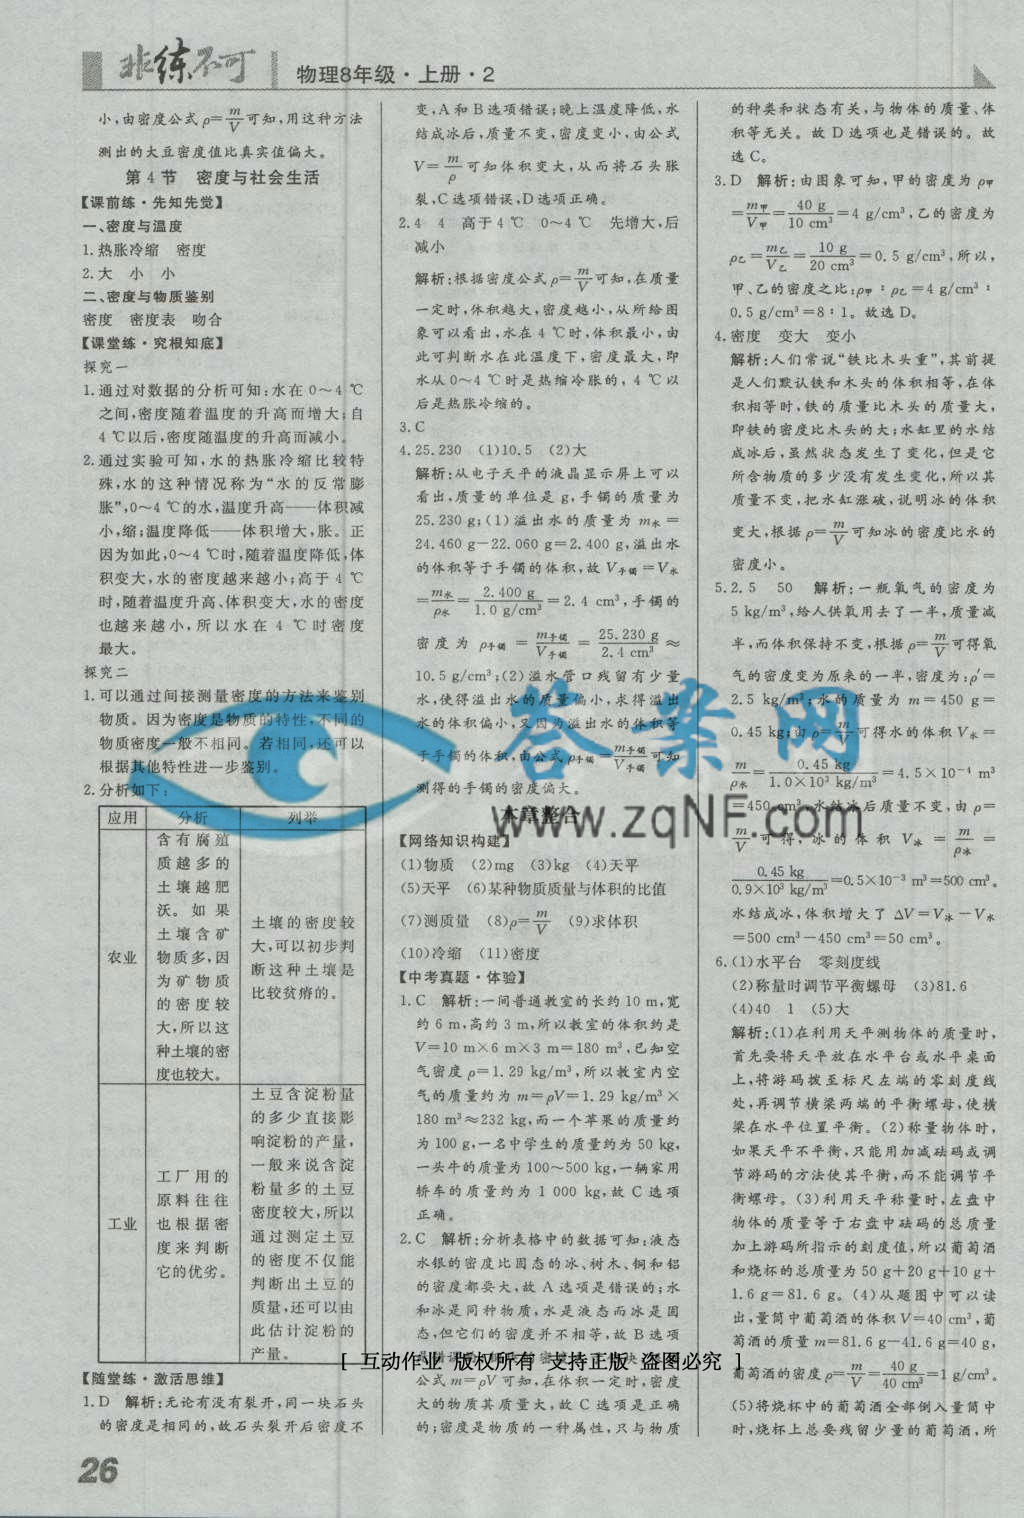 非练不可
物理8年级·上册·2
小,由密度公式 ρ=m/V 可知,用这种方法
测出的大豆密度值比真实值偏大。
第 4 节　密度与社会生活
【课前练·先知先觉】
一、密度与温度
1.热胀冷缩　密度
2.大　小　小
二、密度与物质鉴别
密度　密度表　吻合
【课堂练·究根知底】
探究一
1.通过对数据的分析可知:水在 0～4 ℃
之间,密度随着温度的升高而增大;自
4 ℃以后,密度随温度的升高而减小。
2.通过实验可知,水的热胀冷缩比较特
殊,水的这种情况称为“水的反常膨
胀”,0～4 ℃的水,温度升高——体积减
小,缩;温度降低——体积增大,胀。正
因为如此,0～4 ℃时,随着温度降低,体
积变大,水的密度越来越小;高于 4 ℃
时,随着温度升高、体积变大,水的密度
也越来越小,所以水在 4 ℃时密度
最大。
探究二
1.可以通过间接测量密度的方法来鉴别
物质。因为密度是物质的特性,不同的
物质密度一般不相同。若相同,还可以
根据其他特性进一步鉴别。
2.分析如下:
应用　分析　列举
农业
含有腐殖
质越多的
土壤越肥
沃。如果
土壤含矿
物质多,因
为矿物质
的密度较
大,所以这
种土壤的密
度也较大。
土壤的密度较
大,可以初步判
断这种土壤是
比较贫瘠的。
工业
工厂用的
原料往往
也根据密
度来判断
它的优劣。
土豆含淀粉量
的多少直接影
响淀粉的产量,
一般来说含淀
粉量多的土豆
密度较大,所以
通过测定土豆
的密度不仅能
判断出土豆的
质量,还可以由
此估计淀粉的
产量。
【随堂练·激活思维】
1.D　解析:无论有没有裂开,同一块石头
的密度是相同的,故石头裂开后密度不
变,A 和 B 选项错误;晚上温度降低,水
结成冰后,质量不变,密度变小,由公式
V=m/ρ 可知体积变大,从而将石头胀
裂,C 选项错误,D 选项正确。
2.4　4　高于 4 ℃　0～4 ℃　先增大,后
减小
解析:根据密度公式 ρ=m/V 可知,在质量
一定时,体积越大,密度越小,从所给图
象可以看出,水在 4 ℃时,体积最小,由
此可判断水在此温度下,密度最大,即
水从 0～4 ℃时是热缩冷胀的,4 ℃以
后是热胀冷缩的。
3.C
4.25.230　(1)10.5　(2)大
解析:从电子天平的液晶显示屏上可以
看出,质量的单位是 g,手镯的质量为
25.230 g;(1)溢出水的质量为 m水=
24.460 g－22.060 g=2.400 g,溢出水
的体积等于手镯的体积,故 V手镯=V水
=m水/ρ水=2.400 g/1.0 g/cm³=2.4 cm³,手镯的
密度为 ρ手镯=m手镯/V手镯=25.230 g/2.4 cm³≈
10.5 g/cm³;(2)溢水管口残留有少量
水,使得溢出水的质量偏小,求得溢出
水的体积偏小,又因为溢出水的体积等
于手镯的体积,由公式 ρ手镯=m手镯/V手镯 可知
测得的手镯的密度偏大。
本章整合
【网络知识构建】
(1)物质　(2)mg　(3)kg　(4)天平
(5)天平　(6)某种物质质量与体积的比值
(7)测质量　(8)ρ=m/V　(9)求体积
(10)冷缩　(11)密度
【中考真题·体验】
1.C　解析:一间普通教室的长约 10 m,宽
约 6 m,高约 3 m,所以教室的体积约是
V=10 m×6 m×3 m=180 m³,已知空
气密度 ρ=1.29 kg/m³,所以教室内空
气的质量约为 m=ρV=1.29 kg/m³×
180 m³≈232 kg,而一个苹果的质量约
为 100 g,一名中学生的质量约为 50 kg,
一头牛的质量为 100～500 kg,一辆家用
轿车的质量约为 1 000 kg,故 C 选项
正确。
2.C　解析:分析表格中的数据可知:液态
水银的密度比固态的冰、树木、铜和铝
的密度都要大,故 A 选项是错误的;水
和冰是同种物质,水是液态而冰是固
态,但它们的密度并不相等,故 B 选项
公式 m=ρV 可知,在体积一定时,密度
大的物质其质量大,故 C 选项是正确
的;密度是物质的一种属性,只与物质
的种类和状态有关,与物体的质量、体
积等无关。故 D 选项也是错误的。故
选 C。
3.D　解析:由图象可知,甲的密度为 ρ甲
=m甲/V甲=40 g/10 cm³=4 g/cm³,乙的密度为
ρ乙=m乙/V乙=10 g/20 cm³=0.5 g/cm³,所以,
甲、乙的密度之比:ρ甲∶ρ乙=4 g/cm³∶
0.5 g/cm³=8∶1。故选 D。
4.密度　变大　变小
解析:人们常说“铁比木头重”,其前提
是人们默认铁和木头的体积相等,在体
积相等时,铁的质量比木头的质量大,
即铁的密度比木头的大;水缸里的水结
成冰后,虽然状态发生了变化,但是它
所含物质的多少没有发生变化,所以其
质量不变,把水缸涨破,说明冰的体积
变大,根据 ρ=m/V 可知冰的密度比水的
密度小。
5.2.5　50　解析:一瓶氧气的密度为
5 kg/m³,给人供氧用去了一半,质量减
半,而体积保持不变,根据 ρ=m/V 可得氧
气的密度变为原来的一半,密度为:ρ′=
2.5 kg/m³;水的质量为 m=450 g=
0.45 kg;由 ρ=m/V 可得水的体积 V水=
m/ρ=0.45 kg/1.0×10³ kg/m³=4.5×10⁻⁴ m³
=450 cm³,水结冰后质量不变,由 ρ=
m/V 可得,冰的体积 V冰=m/ρ冰=
0.45 kg/0.9×10³ kg/m³=0.5×10⁻³ m³=500 cm³。
水结成冰,体积增大了 ΔV=V冰－V水
=500 cm³－450 cm³=50 cm³。
6.(1)水平台　零刻度线
(2)称量时调节平衡螺母　(3)81.6
(4)40　1　(5)大
解析:(1)在利用天平测物体的质量时,
首先要将天平放在水平台或水平桌面
上,将游码拨至标尺左端的零刻度线
处,再调节横梁两端的平衡螺母,使横
梁在水平位置平衡。(2)称量物体时,
如果天平不平衡,只能用加减砝码或调
节游码的方法使其平衡,而不能调节平
衡螺母。(3)利用天平称量时,左盘中
物体的质量等于右盘中砝码的总质量
加上游码所指示的刻度值,所以葡萄酒
和烧杯的总质量为 50 g+20 g+10 g+
1.6 g=81.6 g。(4)从题图中可以读
出,量筒中葡萄酒的体积 V=40 cm³,葡
萄酒的质量 m=81.6 g－41.6 g=40 g,
葡萄酒的密度 ρ=m/V=40 g/40 cm³=1 g/cm³。
(5)将烧杯中的葡萄酒全部倒入量筒中
时,烧杯上总要残留少量的葡萄酒,所
答案网
www.zqNF.com
[ 互动作业 版权所有 支持正版 盗图必究 ]
26